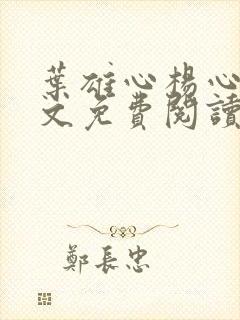 葉雄心楊心
文免費閱讀
鄭長忠